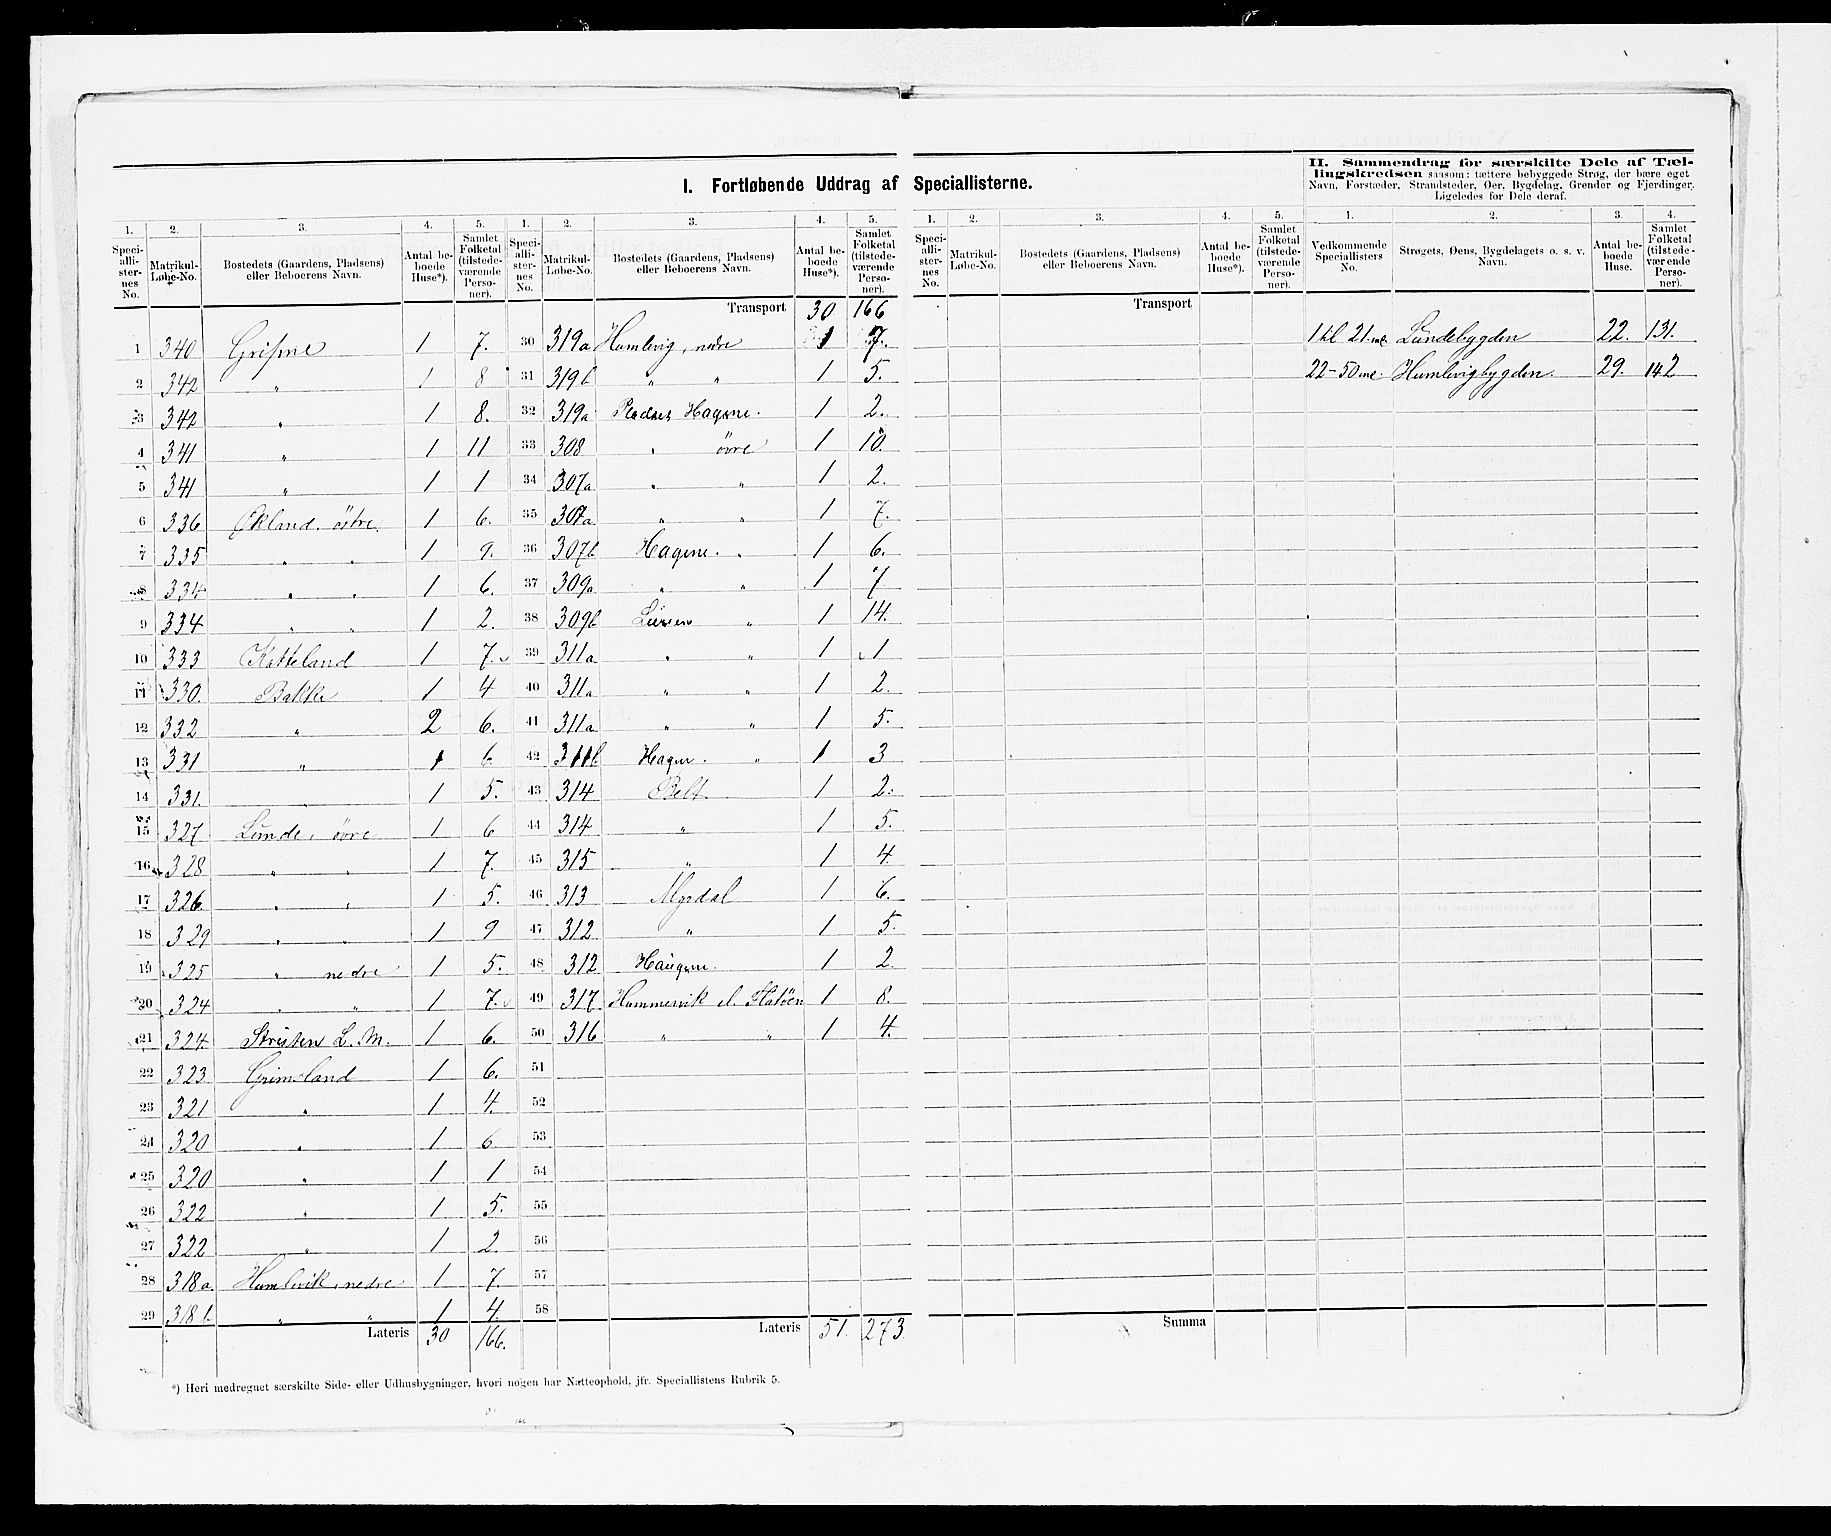 I. Fortløbende Uddrag af Speciallisterne.
II. Sammendrag for særskilte Dele af Tællingskredsen saasom: tættere bebyggede Strøg, der bære eget
Navn, Forstæder, Strandsteder, Øer, Bygdelag, Grender og Fjerdinger.
Ligeledes for Dele deraf.
1. 2. 3. 4. 5.
Speciallisternes No. Matrikul-Løbe-No. Bostedets (Gaardens, Pladsens) eller Beboerens Navn. Antal beboede Huse*). Samlet Folketal (tilstedeværende Personer).
1 340 1 7.
2 342 " 1 8
3 342 " 1 8.
4 341 " 1 11
5 341 " 1 1
6 336 Økland. östre. 1 6.
7 335 " " 1 9.
8 334 " " 1 6.
9 334 " " 1 2.
10 333 Katteland 1 7.
11 330. Bakke 1 4
12 332 " 2 6.
13 331 " 1 6
14 331. 1 5.
15 327 Lunde, övre 1 6
16 328 " " 1 7.
17 326. " " 1 5.
18 329 " " 1 9
19 325 " nedre 1 5.
20 324 " " 1 7.
21 324 L. M. 1 6.
22 323 Grimsland 1 6.
23 321 " 1 4.
24 320 " 1 6.
25 320 " 1 1
26 322 " 1 5.
27 322 " 1 2.
28 318a. Humlevik, nedre 1 7.
29 318b. " " 1 4.
Lateris 30 166.
1. 2. 3. 4. 5.
Speciallisternes No. Matrikul-Løbe-No. Bostedets (Gaardens, Pladsens) eller Beboerens Navn. Antal beboede Huse*). Samlet Folketal (tilstedeværende Personer).
Transport 30 166
30 319a Humlevig, nedre 1 7.
31 319b " " 1 5.
32 319a Pladsen Hagene. 1 2.
33 308 " övre 1 10.
34 307a " " 1 2.
35 307a " " 1 7.
36 307b Hagene. " 1 6.
37 309a " " 1 7
38 309b " 1 14.
39 311a " " 1 1
40 311a " " 1 2.
41 311a " " 1 5.
42 311b Hagen. " 1 3
43 314 Belt 1 2.
44 314 " 1 5.
45 315 " 1 4.
46 313 Myrdal 1 6.
47 312 " 1 5.
48 312 Haugene. 1 2.
49 317. Hummervik el. 1 8.
50 316 " " 1 4.
51
52
53
54
55
56
57
58
Lateris 51. 273
1. 2. 3. 4. 5.
Speciallisternes No. Matrikul-Løbe-No. Bostedets (Gaardens, Pladsens) eller Beboerens Navn. Antal beboede Huse*). Samlet Folketal (tilstedeværende Personer).
Transport
Summa
1. 2. 3. 4.
Vedkommende Speciallisters No. Strøgets, Øens, Bygdelagets o. s. v. Navn. Antal beboede Huse. Samlet Folketal (tilstedeværende Personer).
1 til 21. Lundebygden 22. 131.
22-50 Humlevigbygden. 29. 142
*) Heri medregnet særskilte Side- eller Udhusbygninger, hvori nogen har Natteophold, jfr. Speciallistens Rubrik 5.